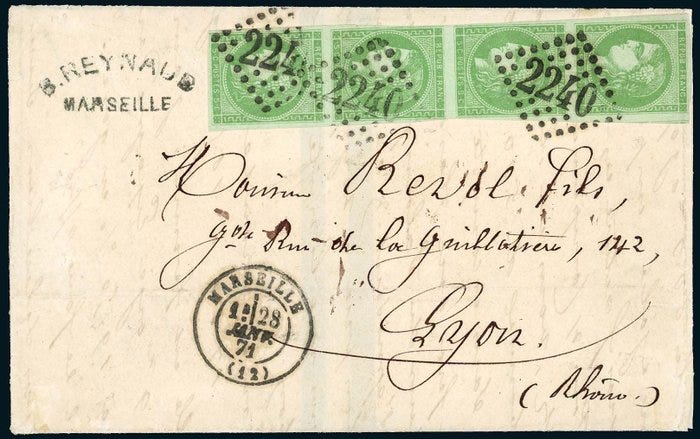 B. REYNAUD
MARSEILLE
224
2240
2240
REPUB. FRANC.
Monsieur Revol fils,
gde Rue de la Guillotière, 142,
Lyon.
(Rhône.)
MARSEILLE
28
JANV.
71
(12)